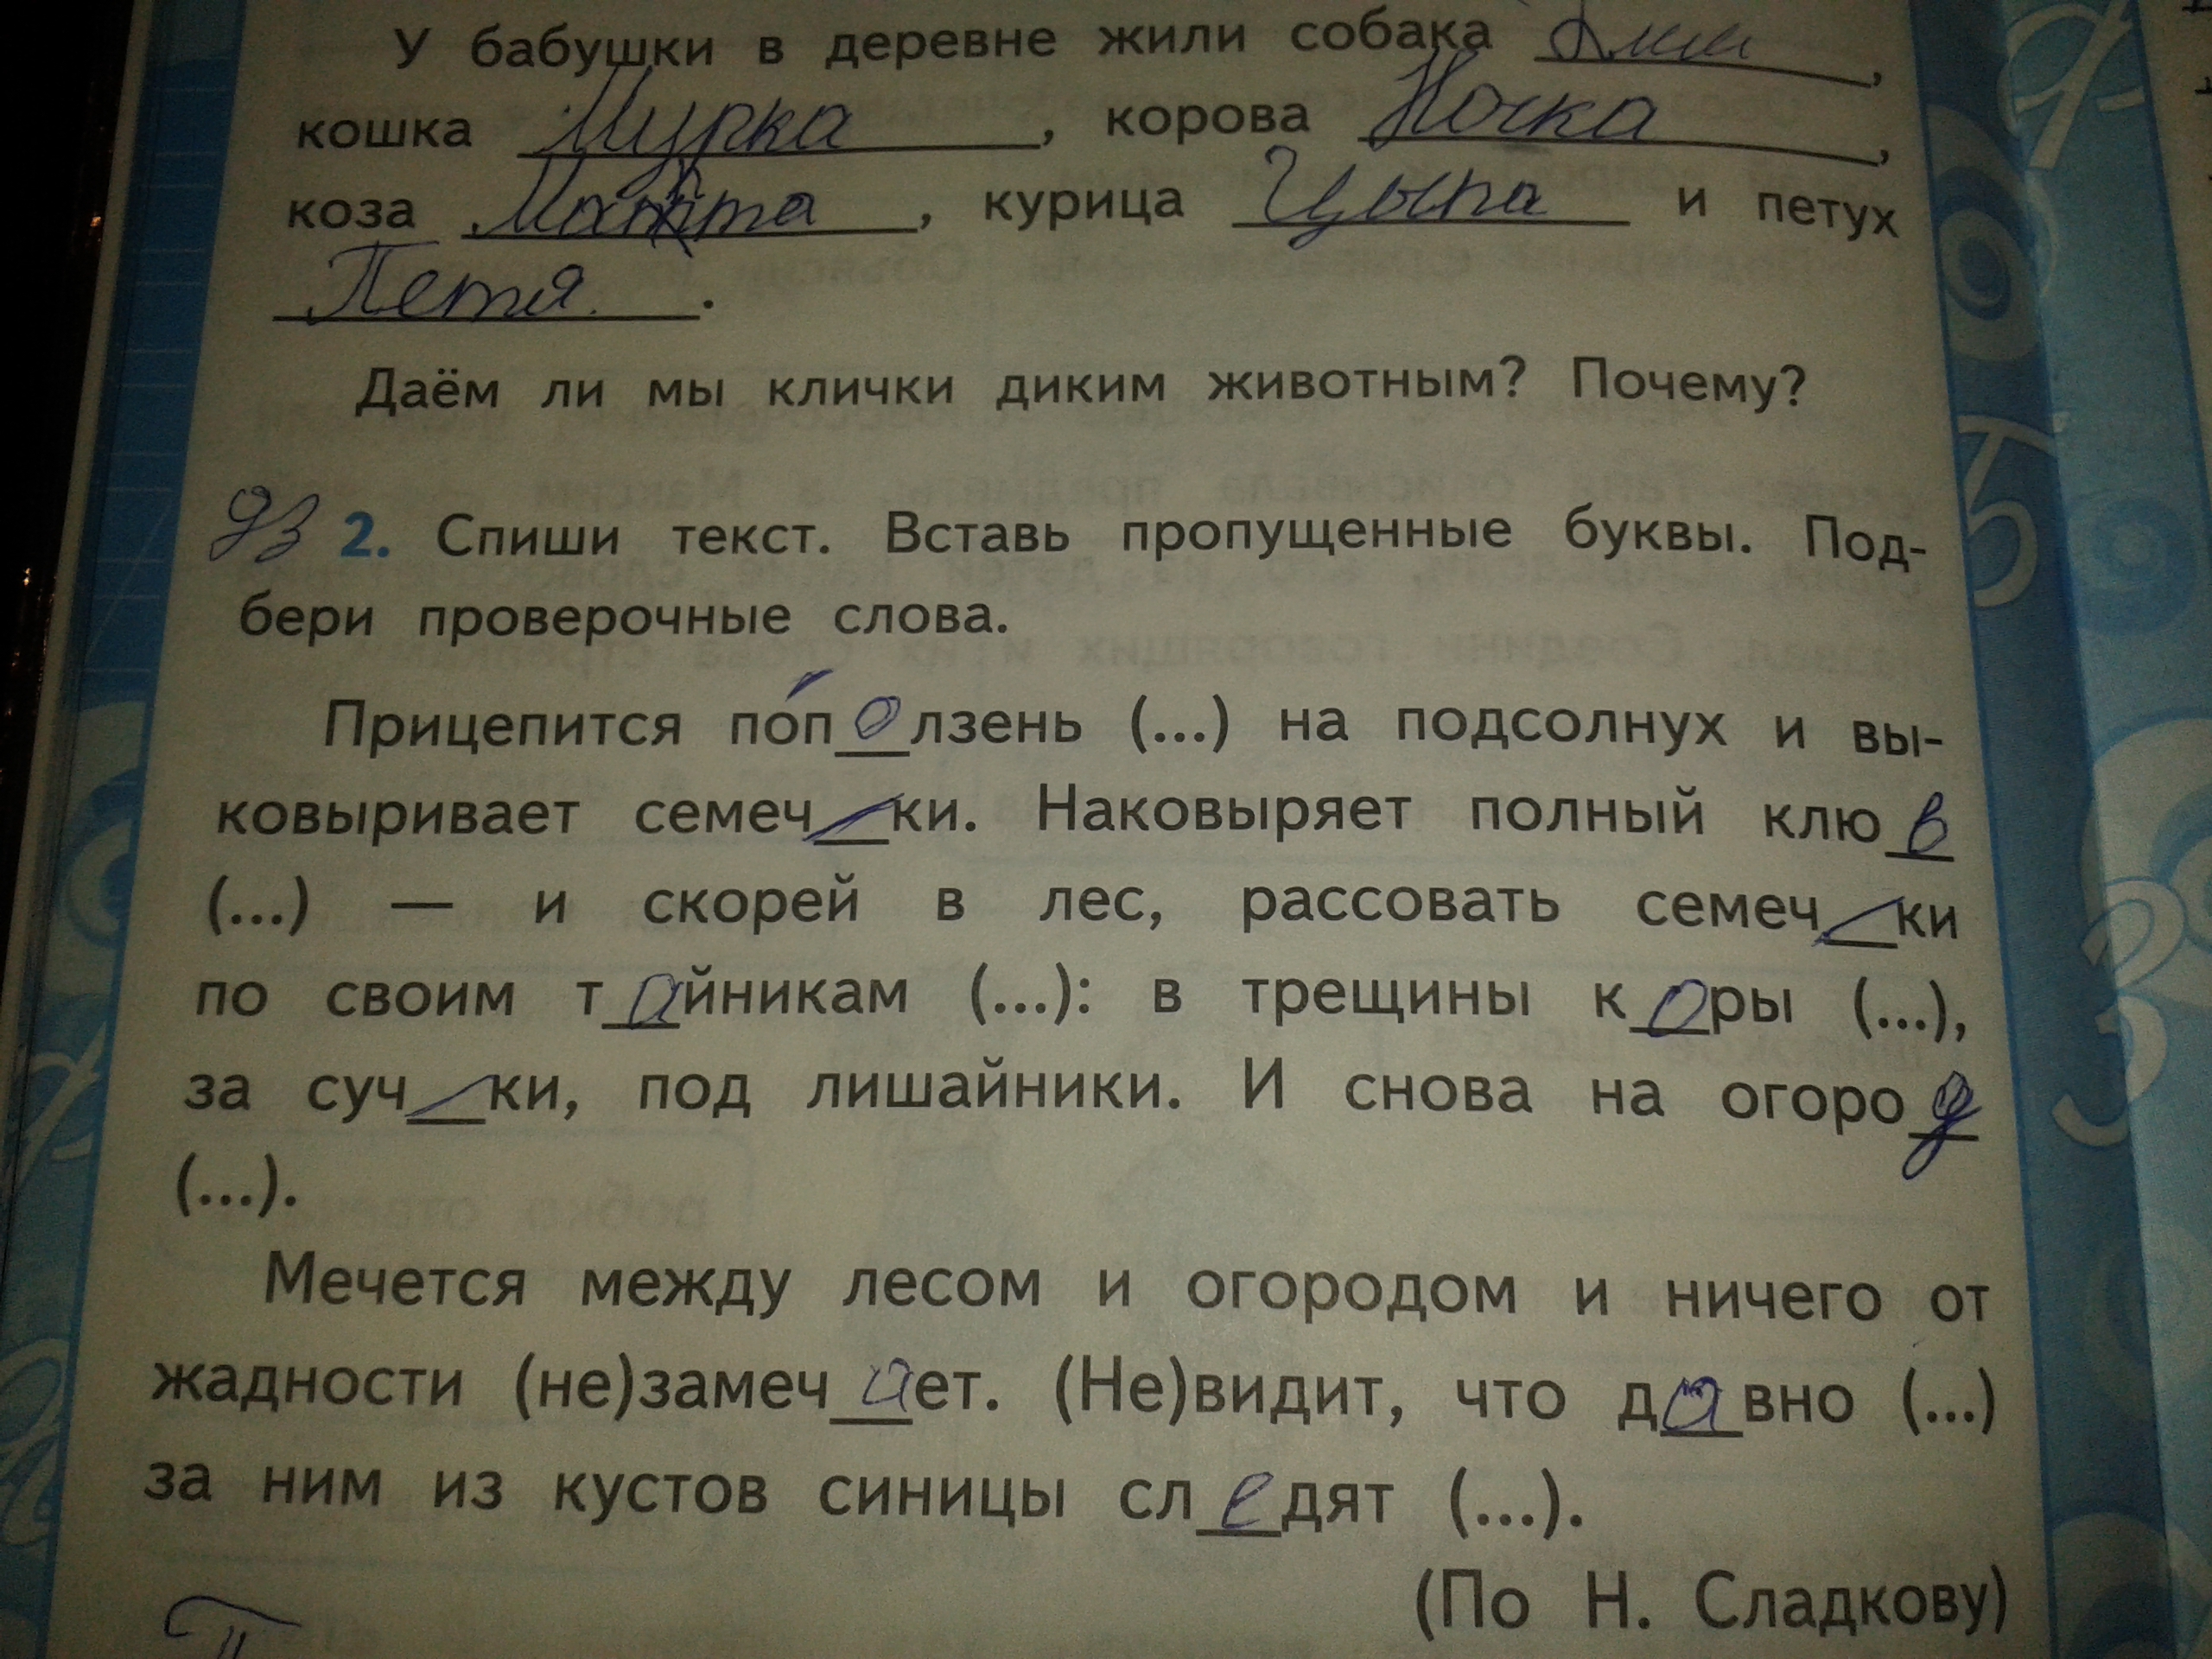 У бабушки в деревне жили собака ,
кошка Мурка , корова Ночка ,
коза , курица Цыпа и петух
Петя. .
Даём ли мы клички диким животным? Почему?
дз 2. Спиши текст. Вставь пропущенные буквы. Под-
бери проверочные слова.
Прицепится по́ползень (...) на подсолнух и вы-
ковыривает семеч__ки. Наковыряет полный клюв
(...) — и скорей в лес, рассовать семеч__ки
по своим тайникам (...): в трещины коры (...),
за суч__ки, под лишайники. И снова на огород
(...).
Мечется между лесом и огородом и ничего от
жадности (не)замечает. (Не)видит, что давно (...)
за ним из кустов синицы следят (...).
(По Н. Сладкову)